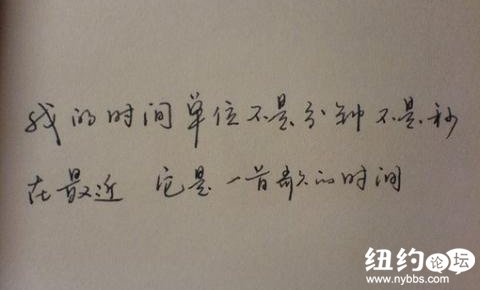 我的时间单位不是分钟不是秒
在最近 它是一首歌的时间
纽约论坛
www.nybbs.com